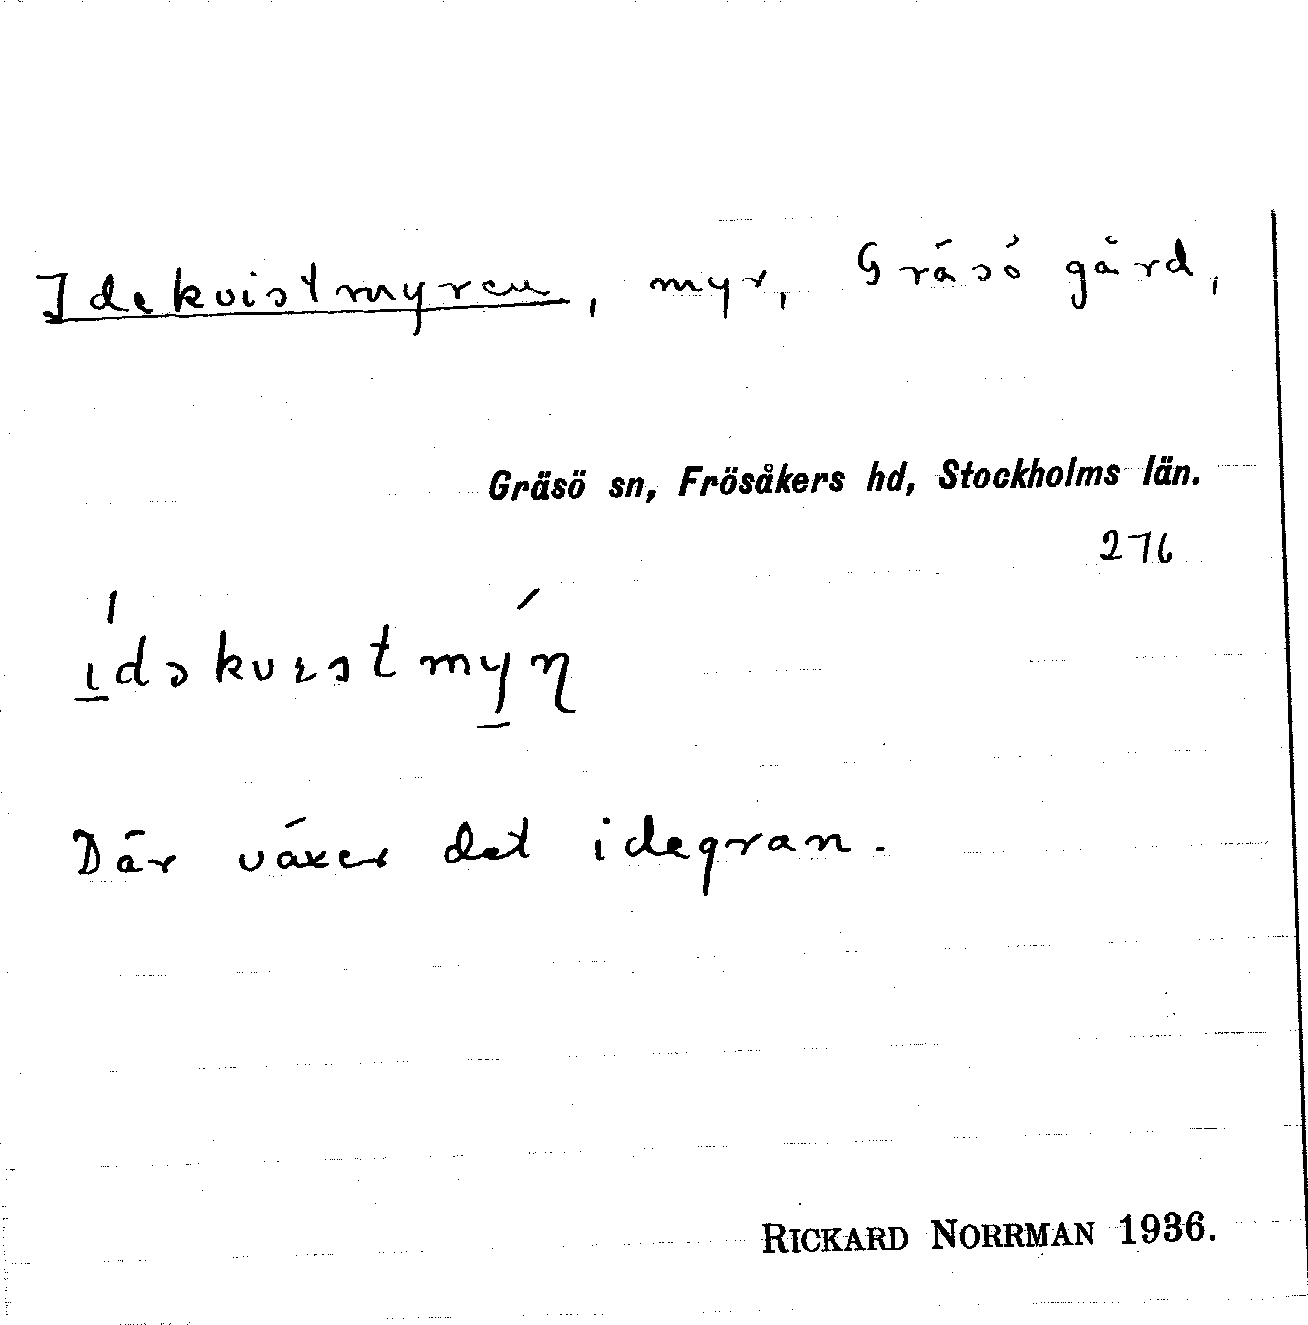 Idekvistmyren, myr, Gräsö gård,
Gräsö sn, Frösåkers hd, Stockholms län.
276
ídəkvɪstmýn
Där växer det idegran.
RICKARD NORRMAN 1936.